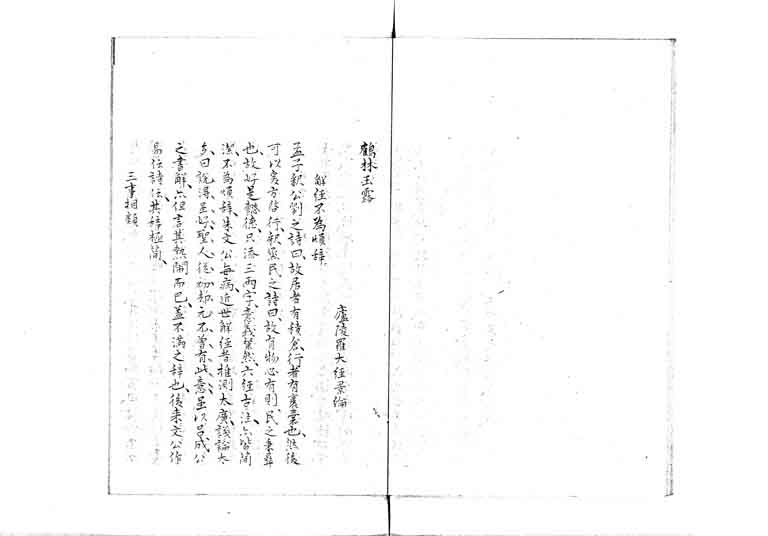 鶴林玉露
廬陵羅大經景綸
解經不為煩辭
孟子釈公劉之詩曰、故居者有積倉、行者有裹囊也、然後
可以爰方啓行、釈烝民之詩曰、故有物必有則、民之秉彝
也、故好是懿德、只添三両字、意義粲然、六經古注、亦皆簡
潔不為煩辞、朱文公每病近世解經者推測太廣、議論太
多、曰說得雖好、聖人從初却元不曾有此意、虽以呂成公
之書解、亦但言其熱鬧而已、蓋不滿之辞也、後来文公作
易伝詩伝、其辞極簡、
三事相類